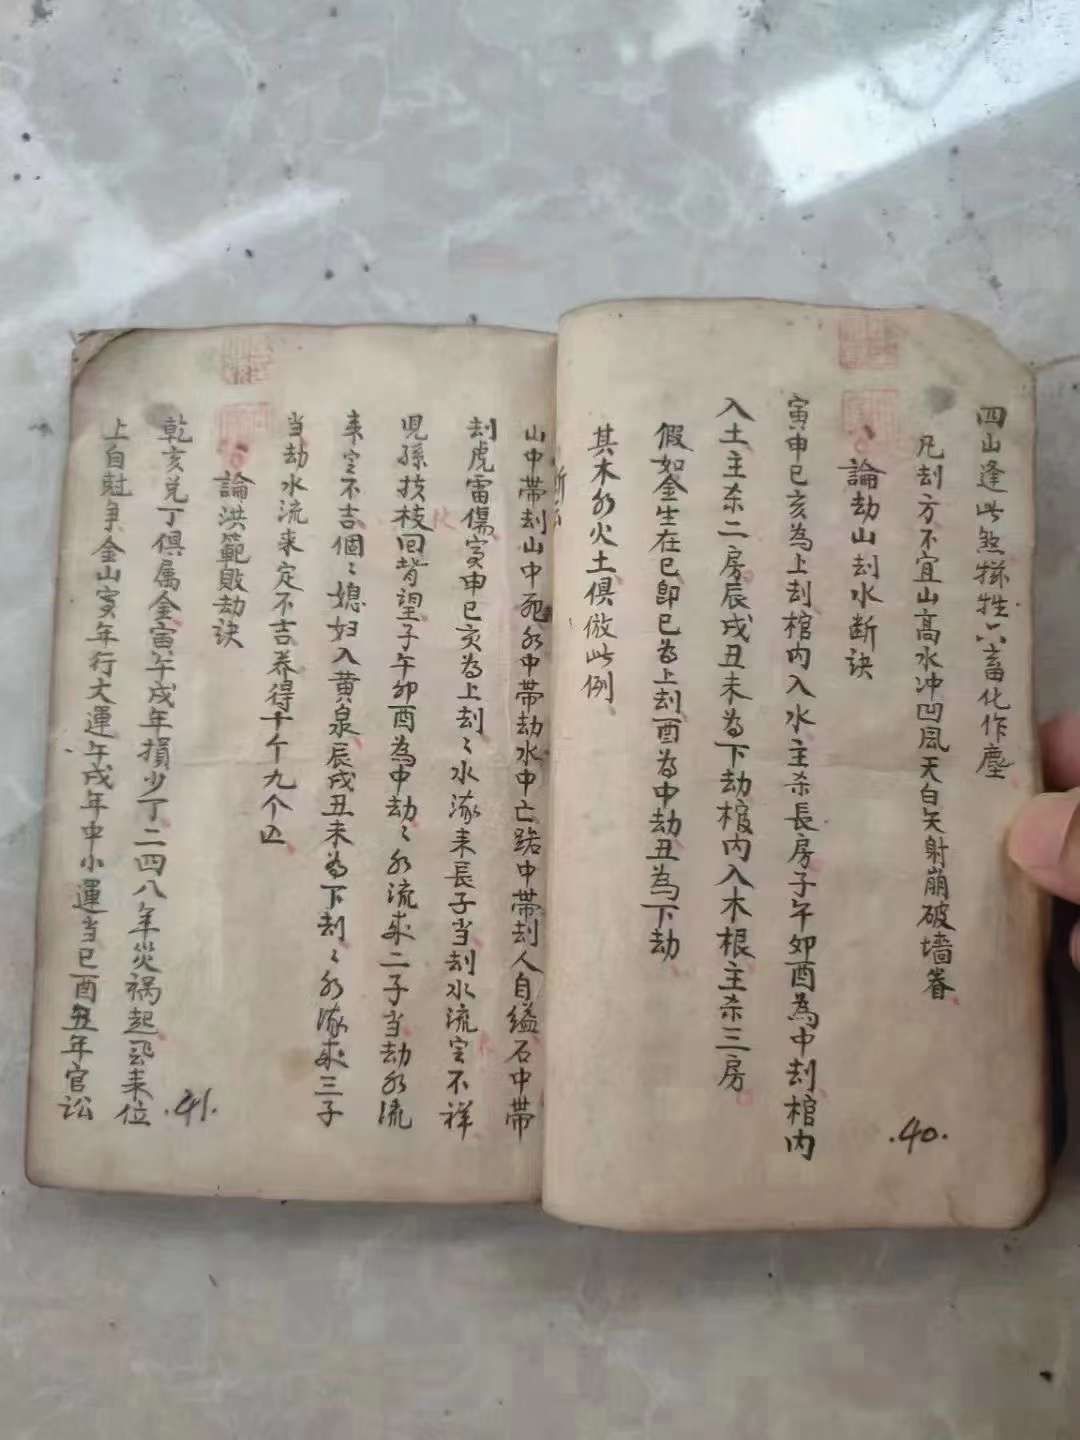 四山逢此煞豬牲六畜化作塵
凡刦方不宜山高水冲凹風天白矢射崩破墙脊
論劫山刦水断訣
寅申巳亥為上刦棺内入水主杀長房子午卯酉為中刦棺内
入土主杀二房辰戌丑未為下劫棺内入木根主杀三房
假如金生在巳即巳為上刦酉為中劫丑為下劫
其木水火土俱倣此例
.40.
断
山中帶刦山中死水中帶劫水中亡路中帶刦人自縊石中帶
刦虎雷傷寅申巳亥為上刦〻水流来長子当刦水流定不祥
児孫技枝回背望子午卯酉為中劫〻水流来二子当劫水流
来定不吉個〻媳妇入黄泉辰戌丑未為下刦〻水流来三子
当劫水流来定不吉养得十个九个亡
論洪範敗劫訣
.41.
乾亥兑丁俱属金寅午戌年損少丁二四八年災禍起来位
上自尅争金山寅年行大運午戌年中小運当巳酉丑年官訟